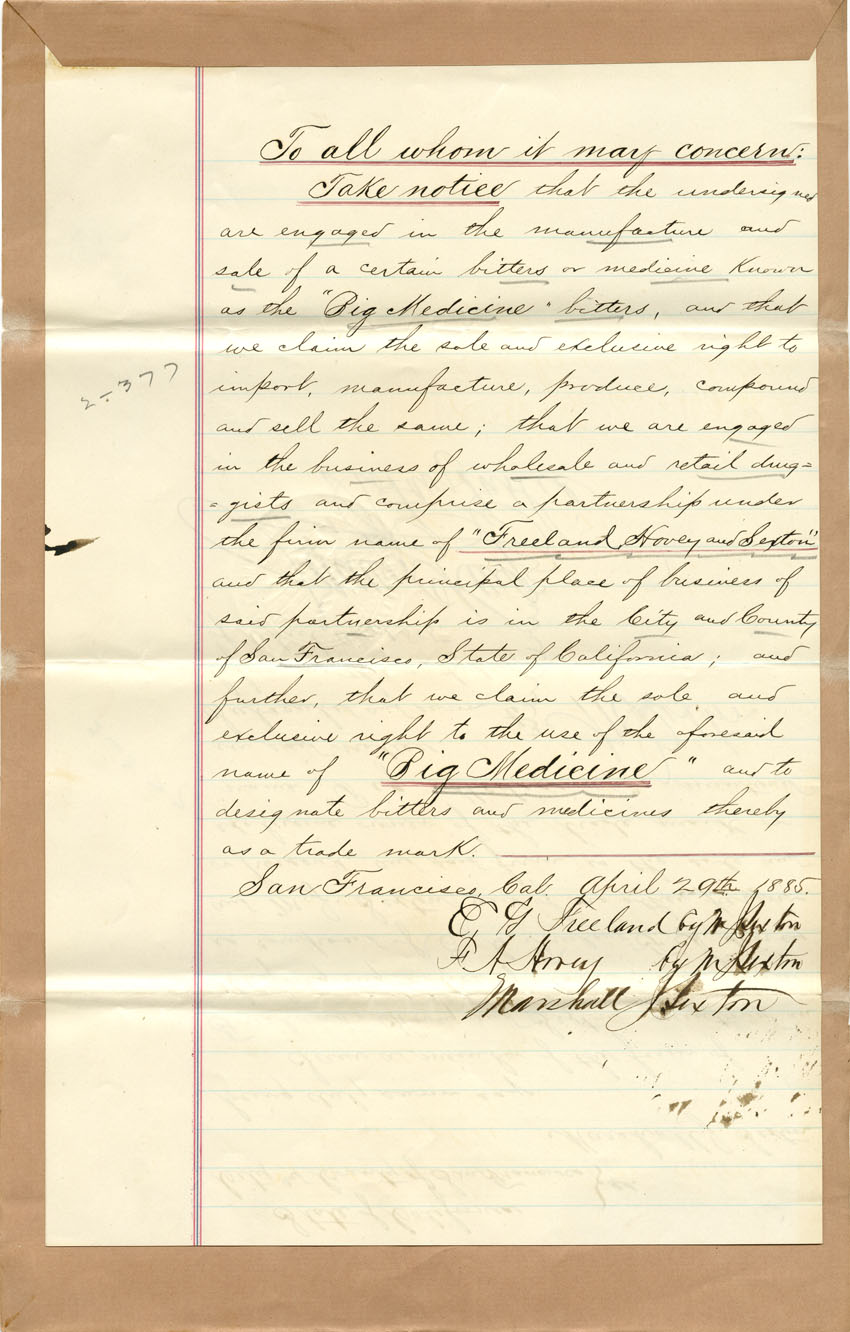 To all whom it may concern:
Take notice that the undersigned
are engaged in the manufacture and
sale of a certain bitters or medicine known
as the "Big Medicine" bitters, and that
we claim the sole and exclusive right to
import, manufacture, produce, compound
and sell the same; that we are engaged
2-377
in the business of wholesale and retail drug=
=gists and comprise a partnership under
the firm name of "Freeland, Hovey and Sexton"
and that the principal place of business of
said partnership is in the City and County
of San Francisco, State of California; and
further, that we claim the sole and
exclusive right to the use of the aforesaid
name of "Big Medicine" and to
designate bitters and medicines thereby
as a trade mark.
San Francisco, Cal. April 29th 1885.
E G Freeland by M J Sexton
F A Hovey by M J Sexton
Marshall J Sexton